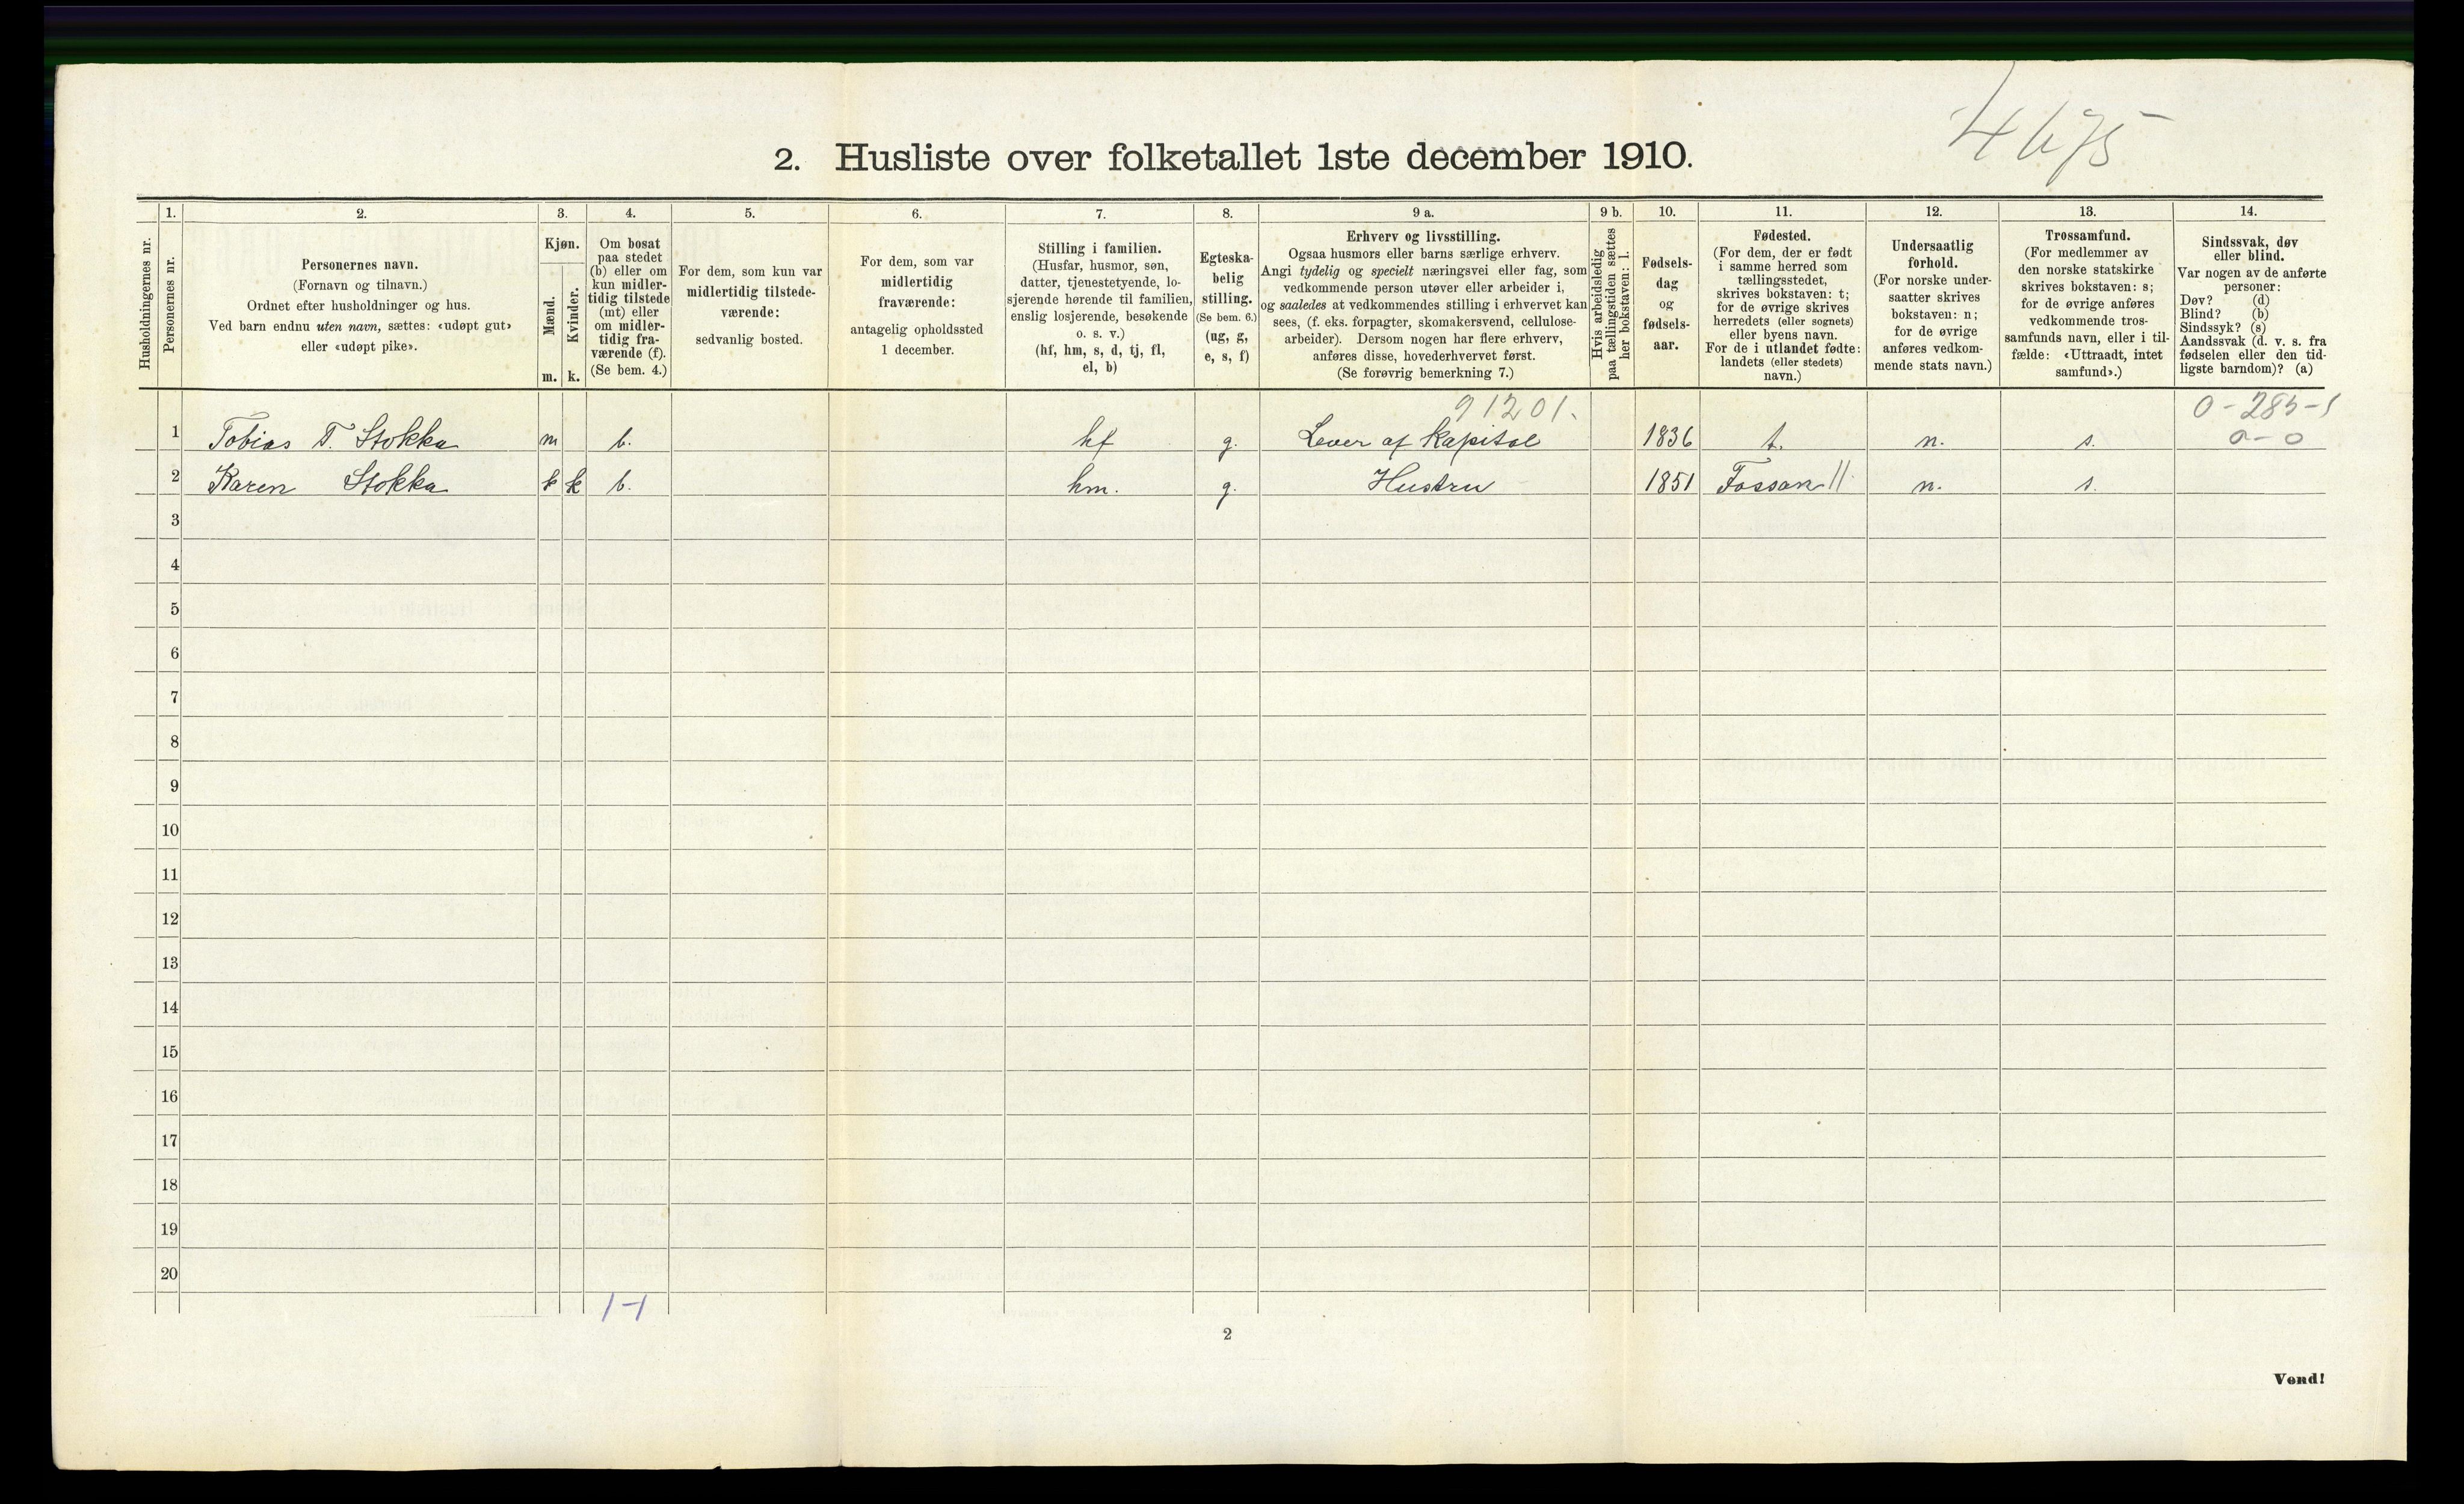 4675
2. Husliste over folketallet 1ste december 1910.
Husholdningernes nr.
1.
Personernes nr.
2.
Personernes navn.
(Fornavn og tilnavn.)
Ordnet efter husholdninger og hus.
Ved barn endnu uten navn, sættes: «udøpt gut»
eller «udøpt pike».
3.
Kjøn.
Mænd.
Kvinder.
m. k.
4.
Om bosat
paa stedet
(b) eller om
kun midler-
tidig tilstede
(mt) eller
om midler-
tidig fra-
værende (f).
(Se bem. 4.)
5.
For dem, som kun var
midlertidig tilstede-
værende:
sedvanlig bosted.
6.
For dem, som var
midlertidig
fraværende:
antagelig opholdssted
1 december.
7.
Stilling i familien.
(Husfar, husmor, søn,
datter, tjenestetyende, lo-
sjerende hørende til familien,
enslig losjerende, besøkende
o. s. v.)
(hf, hm, s, d, tj, fl,
el, b)
8.
Egteska-
belig
stilling.
(Se bem. 6.)
(ug, g,
e, s, f)
9 a.
Erhverv og livsstilling.
Ogsaa husmors eller barns særlige erhverv.
Angi tydelig og specielt næringsvei eller fag, som
vedkommende person utøver eller arbeider i,
og saaledes at vedkommendes stilling i erhvervet kan
sees, (f. eks. forpagter, skomakersvend, cellulose-
arbeider). Dersom nogen har flere erhverv,
anføres disse, hovederhvervet først.
(Se forøvrig bemerkning 7.)
9 b.
Hvis arbeidsledig
paa tællingstiden sættes
her bokstaven: l.
10.
Fødsels-
dag
og
fødsels-
aar.
11.
Fødested.
(For dem, der er født
i samme herred som
tællingsstedet,
skrives bokstaven: t;
for de øvrige skrives
herredets (eller sognets)
eller byens navn.
For de i utlandet fødte:
landets (eller stedets)
navn.)
12.
Undersaatlig
forhold.
(For norske under-
saatter skrives
bokstaven: n;
for de øvrige
anføres vedkom-
mende stats navn.)
13.
Trossamfund.
(For medlemmer av
den norske statskirke
skrives bokstaven: s;
for de øvrige anføres
vedkommende tros-
samfunds navn, eller i til-
fælde: «Uttraadt, intet
samfund».)
14.
Sindssvak, døv
eller blind.
Var nogen av de anførte
personer:
Døv? (d)
Blind? (b)
Sindssyk? (s)
Aandssvak (d. v. s. fra
fødselen eller den tid-
ligste barndom)? (a)
91201. 0-285-1
1 Tobias T. Stokka m b. hf g. Lever af Kapital 1836 t. n. s. 0-0
2 Karen Stokka k k b. hm. g. Hustru 1851 Fossan 11 n. s.
3
4
5
6
7
8
9
10
11
12
13
14
15
16
17
18
19
20
1-1
2
Vend!